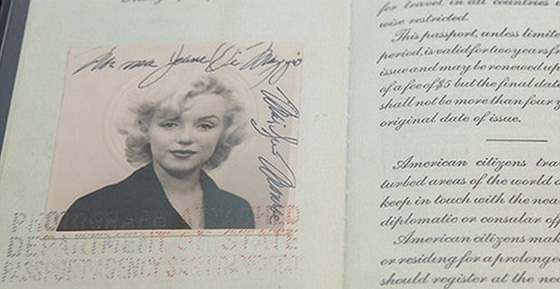 Norma Jeane Di Maggio
Marilyn Monroe
PHOTOGRAPH ATTACHED
DEPARTMENT OF STATE
PASSPORT AGENCY
for travel in all countries
wise restricted.
This passport, unless limite
period, is valid for two years fr
issue and may be renewed up
of a fee of $5 but the final da
shall not be more than four
original date of issue.
American citizens tra
turbed areas of the world
keep in touch with the nea
diplomatic or consular of
American citizens mak
or residing for a prolonge
should register at the ne